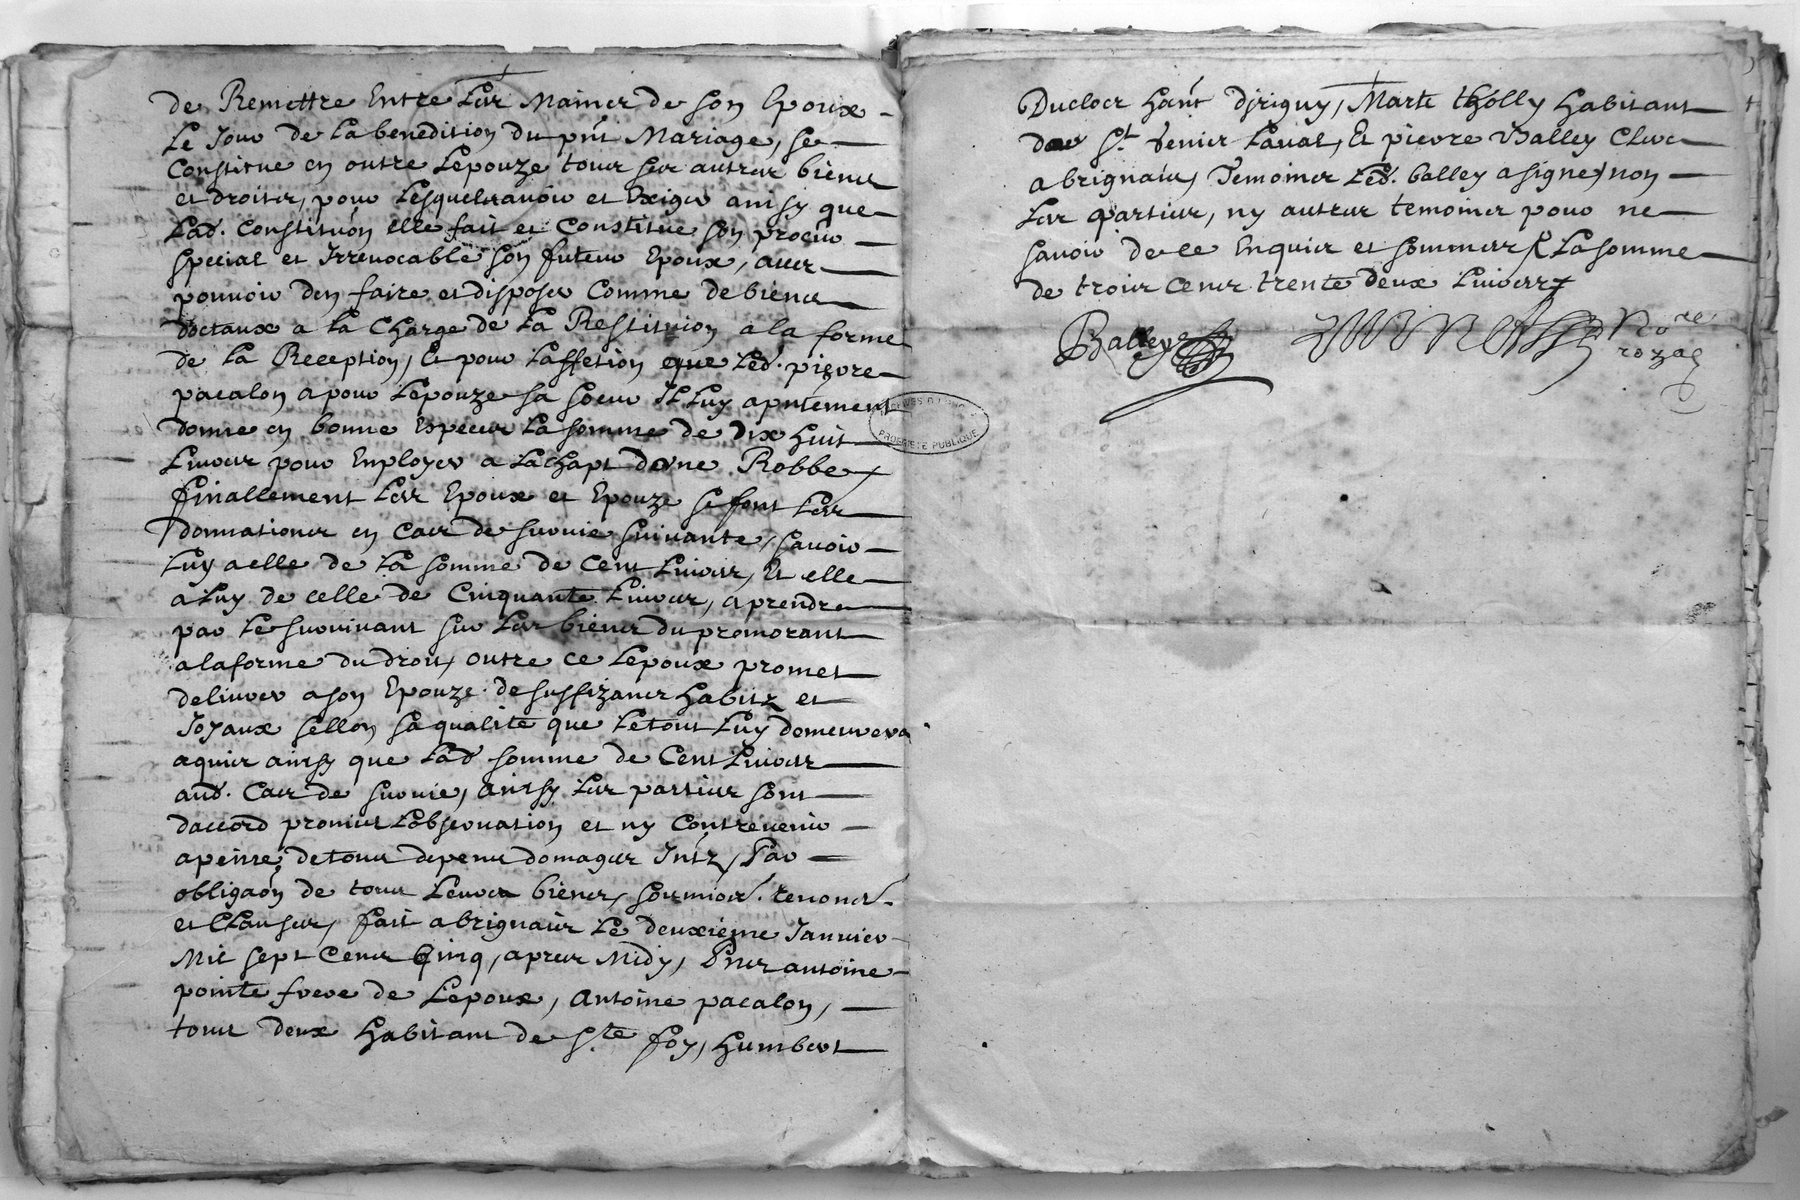 de Remettre Entre Les Mains de son Epoux
Le Jour de La benedition du pnt Mariage, se
Constitue en outre Lepouze tous ses autres biens
et droits, pour Lesquels avoir et Exiger ainsy que
Lad. Constituon elle fait et Constitue son procur
special et Irrevocable son futeur Epoux, avec
pouvoir den faire et disposer Comme de biens
doctaux a La Charge de La Restituion a la forme
de La Reception, Et pour Laffetion que Led. pierre
pacalon a pour Lepouze sa soeur Il Luy a pntement
donne en bonne Especes La somme de dix huit
Livres pour Employer a Lachapt dune Robbe
finallement Les Epoux et Epouze se font Les
donnations en Cas de survie suivante, savoir
Luy a elle de La somme de Cent Livres, Et elle
a Luy de celle de Cinquante Livres, a prendre
par Le survivant sur Les biens du premorant
a la forme du droit, outre ce Lepoux promet
delivrer a son Epouze de suffizans habitz et
Joyaux sellon sa qualite que Letout Luy demeurera
aquis ainsy que Lad somme de Cent Livres
aud. Cas de survie, ainsy Les parties sont
daccord promis Lobservation et ny Contrevenir
a peine de tous depens domages Intz, Par
obligaon de tous Leurs biens, soumions. renons.
et Clauses, fait a brignais Le deuxieme Janvier
Mil sept Cens Cinq, apres Midy, Pns antoine
pointe frere de Lepoux, Antoine pacalon,
tous deux habitans de Ste foy, humbert
Duclos hant djrigny, Marte tholly habitant
de St Genis Laval, Et pierre Balley Clerc
a brignais, Temoins Led. balley a signe non
Les parties, ny autres temoins pour ne
savoir de ce Enquis et sommes / La somme
de trois cens trente deux Livres
Balley
Nore
royal
PROPRIETE PUBLIQUE